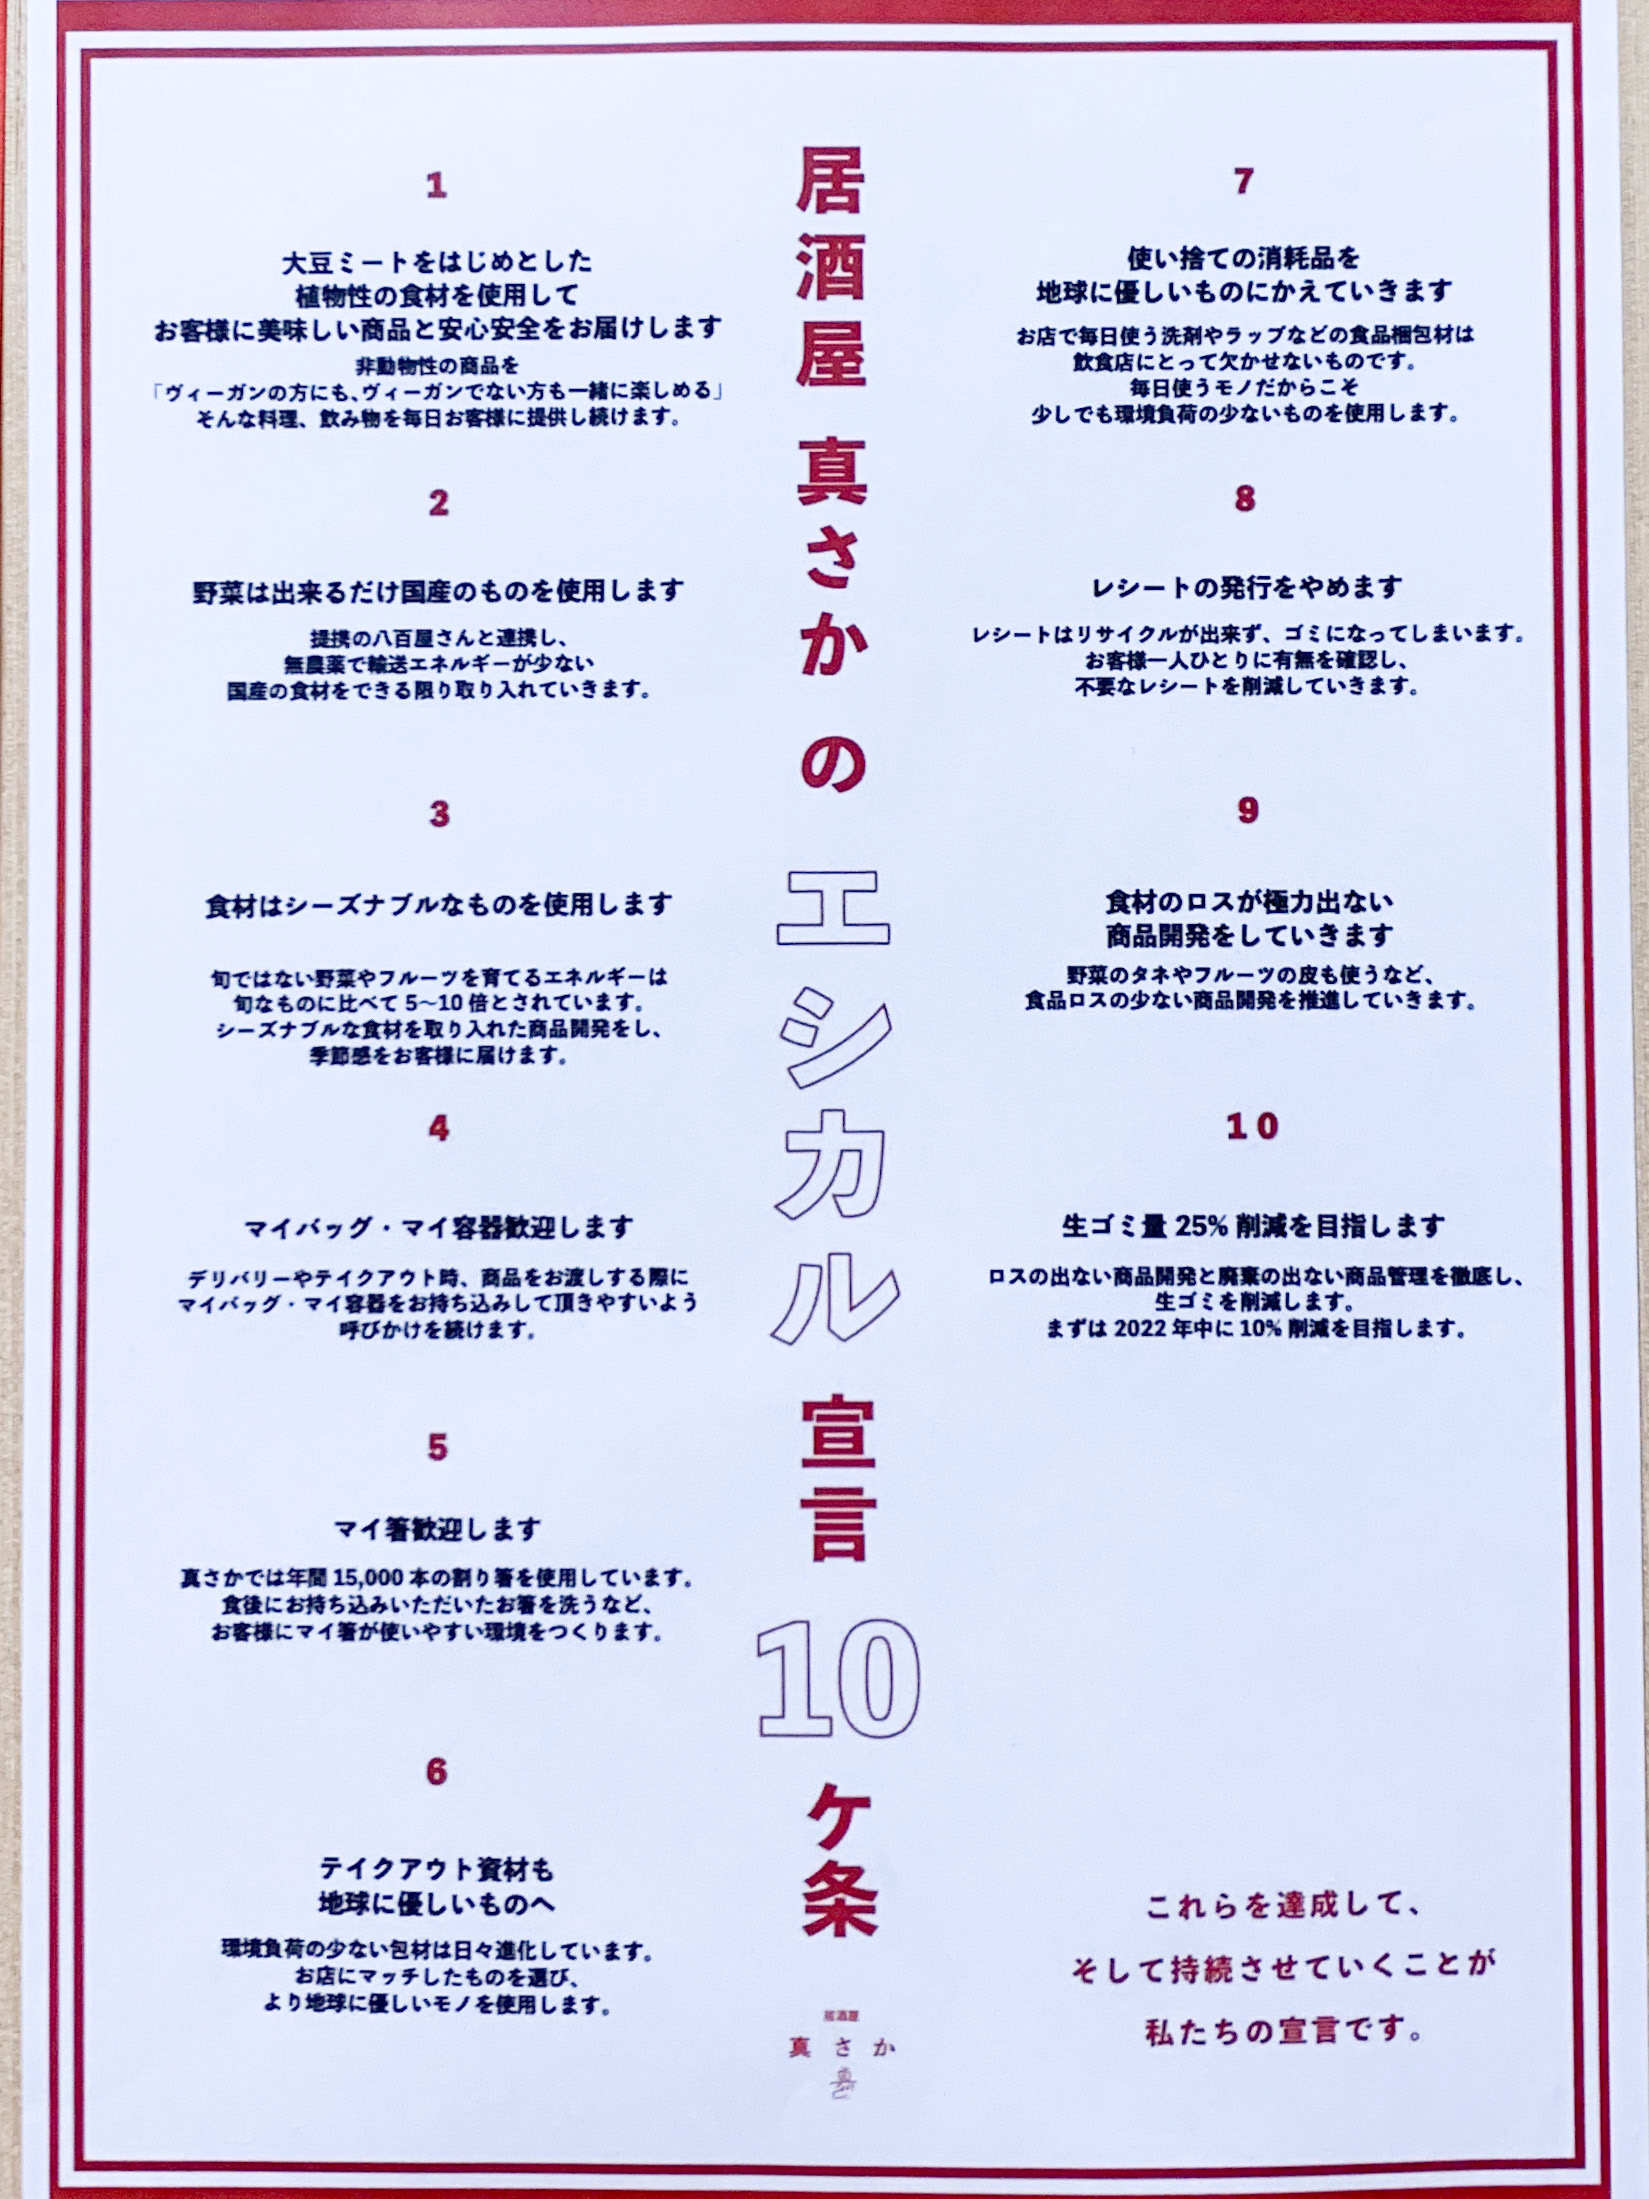 居酒屋 真さか の エシカル 宣言 10 ヶ条
1
大豆ミートをはじめとした
植物性の食材を使用して
お客様に美味しい商品と安心安全をお届けします
非動物性の商品を
「ヴィーガンの方にも、ヴィーガンでない方も一緒に楽しめる」
そんな料理、飲み物を毎日お客様に提供し続けます。
2
野菜は出来るだけ国産のものを使用します
提携の八百屋さんと連携し、
無農薬で輸送エネルギーが少ない
国産の食材をできる限り取り入れていきます。
3
食材はシーズナブルなものを使用します
旬ではない野菜やフルーツを育てるエネルギーは
旬なものに比べて 5〜10 倍とされています。
シーズナブルな食材を取り入れた商品開発をし、
季節感をお客様に届けます。
4
マイバッグ・マイ容器歓迎します
デリバリーやテイクアウト時、商品をお渡しする際に
マイバッグ・マイ容器をお持ち込みして頂きやすいよう
呼びかけを続けます。
5
マイ箸歓迎します
真さかでは年間 15,000 本の割り箸を使用しています。
食後にお持ち込みいただいたお箸を洗うなど、
お客様にマイ箸が使いやすい環境をつくります。
6
テイクアウト資材も
地球に優しいものへ
環境負荷の少ない包材は日々進化しています。
お店にマッチしたものを選び、
より地球に優しいモノを使用します。
7
使い捨ての消耗品を
地球に優しいものにかえていきます
お店で毎日使う洗剤やラップなどの食品梱包材は
飲食店にとって欠かせないものです。
毎日使うモノだからこそ
少しでも環境負荷の少ないものを使用します。
8
レシートの発行をやめます
レシートはリサイクルが出来ず、ゴミになってしまいます。
お客様一人ひとりに有無を確認し、
不要なレシートを削減していきます。
9
食材のロスが極力出ない
商品開発をしていきます
野菜のタネやフルーツの皮も使うなど、
食品ロスの少ない商品開発を推進していきます。
10
生ゴミ量 25% 削減を目指します
ロスの出ない商品開発と廃棄の出ない商品管理を徹底し、
生ゴミを削減します。
まずは 2022 年中に 10% 削減を目指します。
これらを達成して、
そして持続させていくことが
私たちの宣言です。
居酒屋
真さか